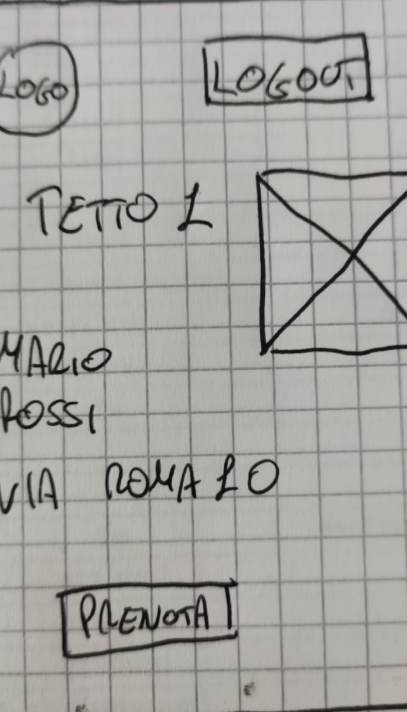 LOGO
LOGOUT
TETTO 1
MARIO
ROSSI
VIA ROMA 10
PRENOTA